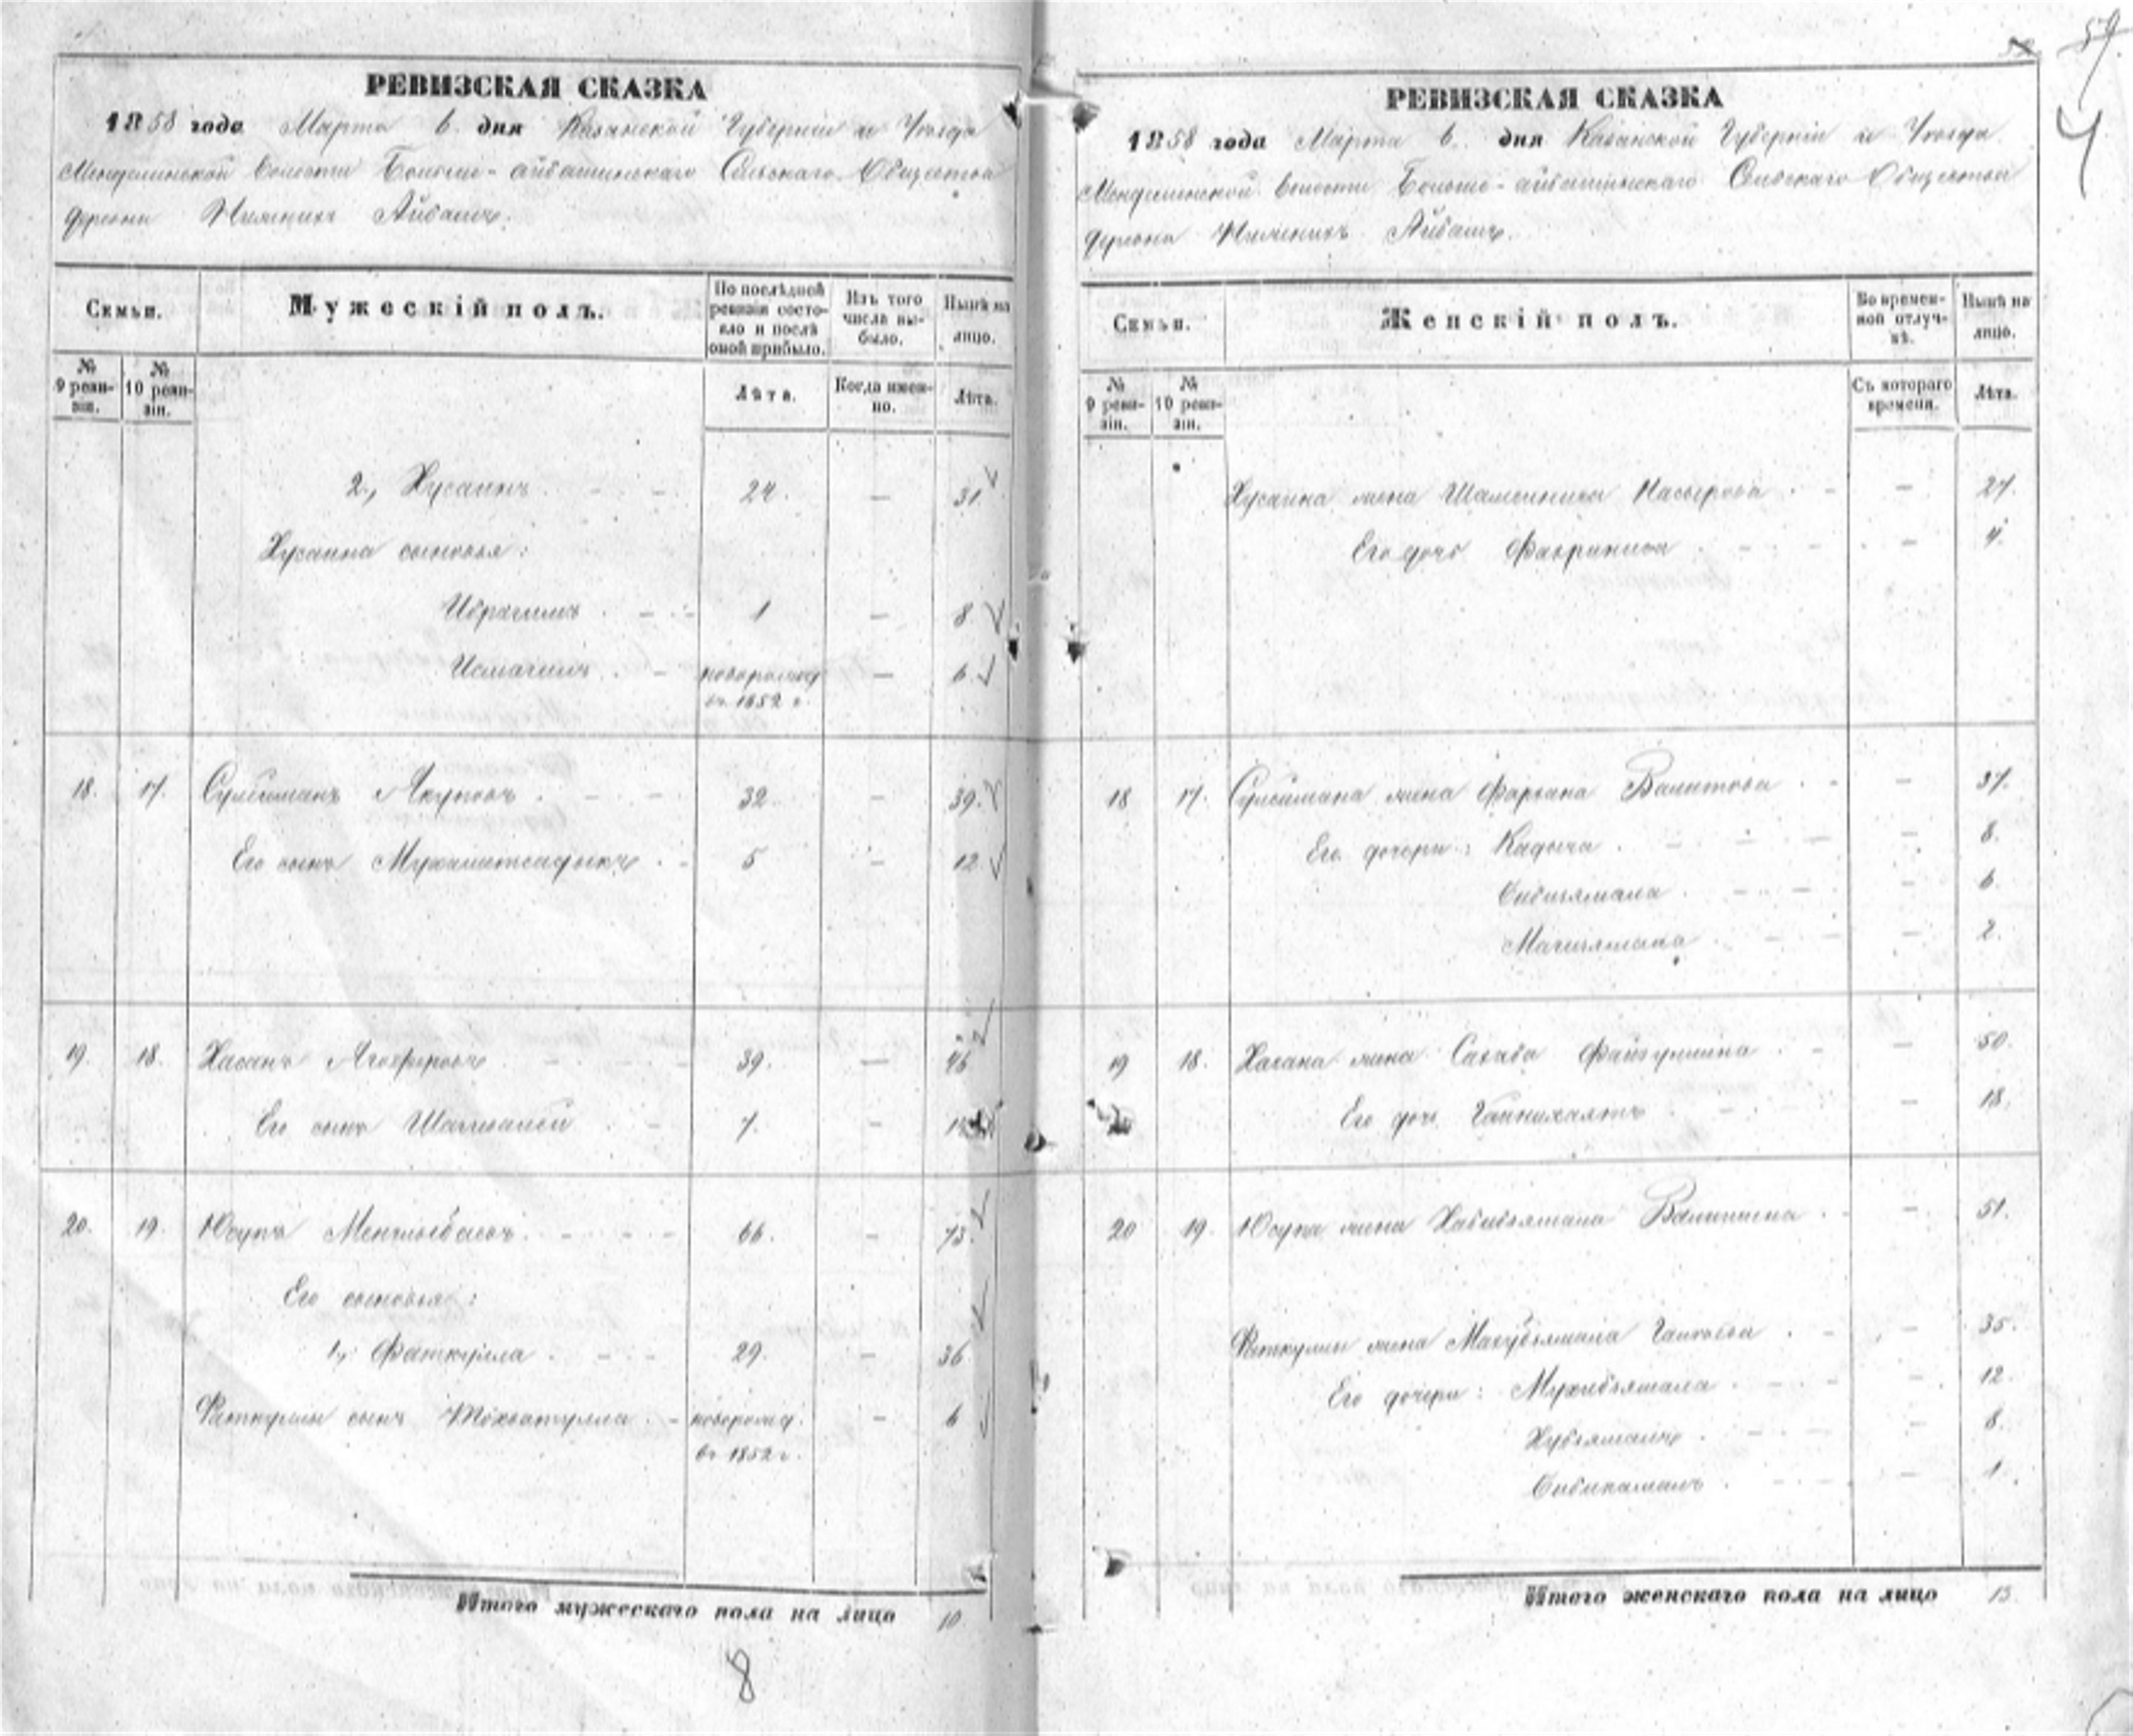 РЕВИЗСКАЯ СКАЗКА
1858 года Марта 6 дня Казанской Губерніи и Уѣзда
Менделинской волости Больше-айбашинскаго Сельскаго Общества
деревни Нижнихъ Айбашъ.
Семьи.
Мужескій полъ.
По послѣдней ревизіи состояло и послѣ оной прибыло.
Изъ того числа выбыло.
Нынѣ на лицо.
№ 9 ревизіи.
№ 10 ревизіи.
Лѣта.
Когда именно.
Лѣта.
2., Хусаинъ. 24. — 31
Хусаина сыновья:
Ибрагимъ 1 — 8
Исмагилъ новорожд въ 1852 г. — 6
18. 17. Сулейманъ Якуповъ 32. — 39.
Его сынъ Мухаметсадыкъ 5 — 12
19. 18. Хасанъ 39. — 46
Его сынъ Шагивалей 7. —
20. 19. Юсупъ 66. — 73.
Его сыновья:
1, Фаткулла 29. — 36
Фаткуллы сынъ новорожд. въ 1852 г. — 6
Итого мужескаго пола на лицо 10
8
59
4
РЕВИЗСКАЯ СКАЗКА
1858 года Марта 6. дня Казанской Губерніи и Уѣзда
Менделинской волости Больше-айбашинскаго Сельскаго Общества
деревни Нижнихъ Айбашъ.
Семьи.
Женскій полъ.
Во временной отлучкѣ.
Нынѣ на лицо.
№ 9 ревизіи.
№ 10 ревизіи.
Съ котораго времени.
Лѣта.
Хусаина жена Насырова — 27.
Его дочь — 4.
18 17. Сулеймана жена Валитова — 37.
Его дочери: Кадыча — 8.
Бибизямала — 6
— 2.
19 18. Хасана жена Сахаба Файзуллина — 50.
Его дочь — 18.
20 19. Юсупа жена Хабибзямала — 51.
Фаткуллы жена — 35.
Его дочери: — 12
— 8.
Бибикамалъ — 1.
Итого женскаго пола на лицо 13.